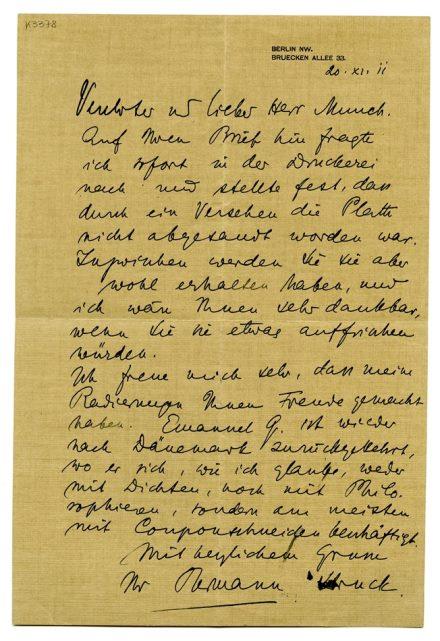 K3378
BERLIN NW.
BRUECKEN ALLEE 33.
20. XI. 11
Verehrter und lieber Herr Munch.
Auf Ihren Brief hin fragte
ich sofort in der Druckerei
nach und stellte fest, dass
durch ein Versehen die Platte
nicht abgesandt worden war.
Inzwischen werden Sie sie aber
wohl erhalten haben, und
ich wäre Ihnen sehr dankbar,
wenn Sie sie etwas auffrischen
würden.
Ich freue mich sehr, dass meine
Radierungen Ihnen Freude gemacht
haben. Emanuel G. ist wieder
nach Dänemark zurückgekehrt,
wo er sich, wie ich glaube, weder
mit Dichten, noch mit Philo-
sophieren, sondern am meisten
mit Couponschneiden beschäftigt.
Mit herzlichem Gruss
Ihr Hermann Struck.